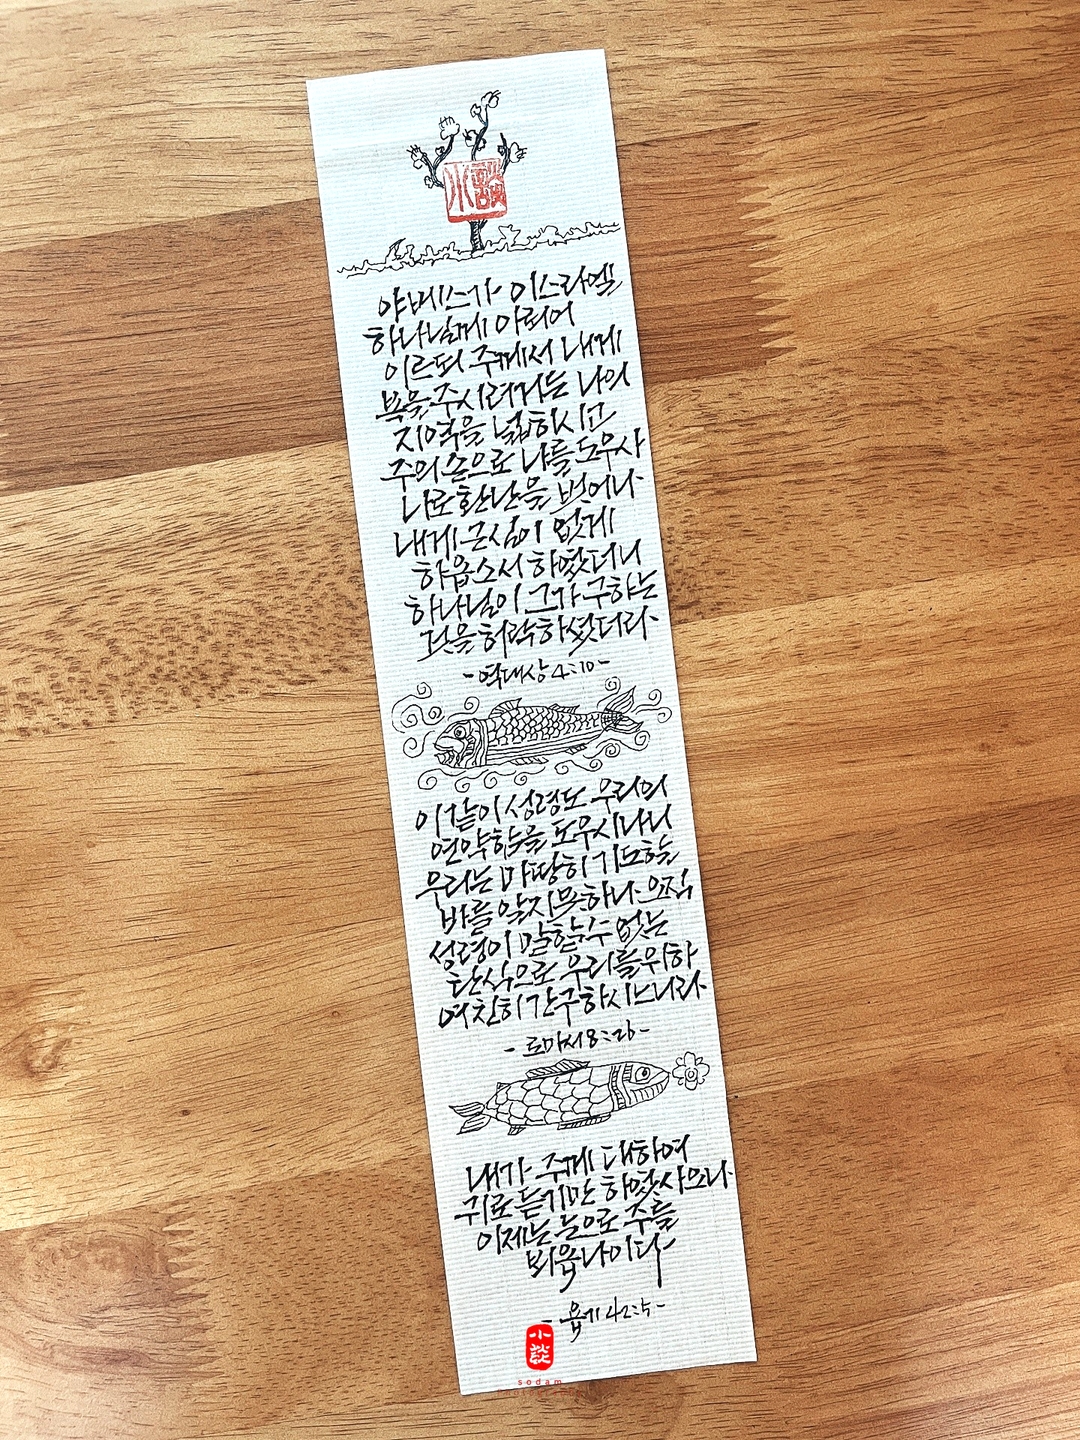 小談
야베스가 이스라엘
하나님께 아뢰어
이르되 주께서 내게
복을 주시려거든 나의
지역을 넓히시고
주의 손으로 나를 도우사
나로 환난을 벗어나
내게 근심이 없게
하옵소서 하였더니
하나님이 그가 구하는
것을 허락하셨더라
-역대상 4:10-
이같이 성령도 우리의
연약함을 도우시나니
우리는 마땅히 기도할
바를 알지 못하나 오직
성령이 말할 수 없는
탄식으로 우리를 위하
여 친히 간구하시느니라
-로마서 8:26-
내가 주께 대하여
귀로 듣기만 하였사오나
이제는 눈으로 주를
뵈옵나이다
-욥기 42:5-
小談
sodam